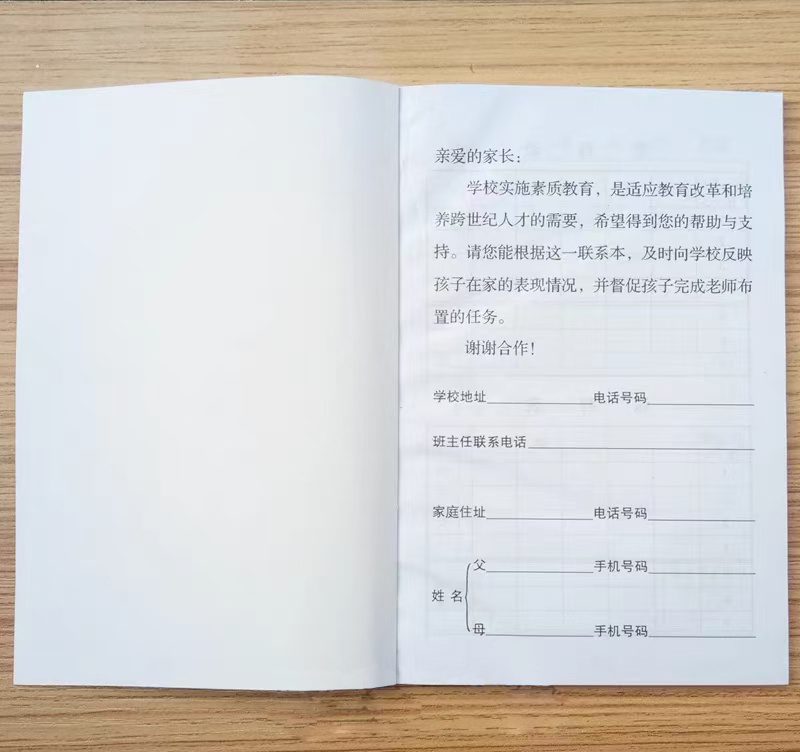 亲爱的家长：
学校实施素质教育，是适应教育改革和培
养跨世纪人才的需要，希望得到您的帮助与支
持。请您能根据这一联系本，及时向学校反映
孩子在家的表现情况，并督促孩子完成老师布
置的任务。
谢谢合作！
学校地址____________电话号码____________
班主任联系电话____________
家庭住址____________电话号码____________
父____________手机号码____________
姓 名
母____________手机号码____________